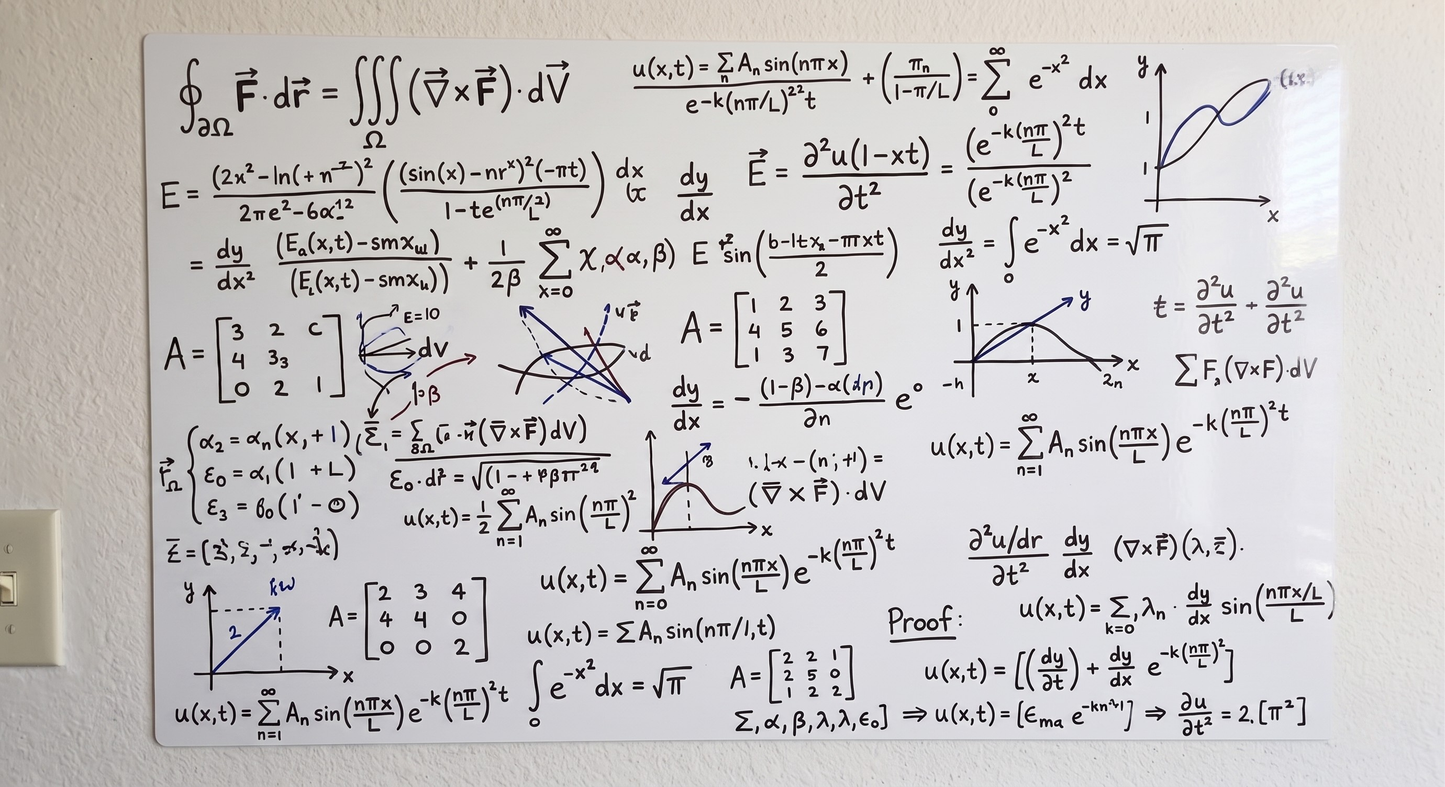 ∮∂Ω F⃗·dr⃗ = ∭Ω (∇⃗×F⃗)·dV⃗
u(x,t) = Σn An sin(nπx) / e-k(nπ/L)^22 t + (πn / 1-π/L) = Σ0^∞ e^-x² dx
y
1
1
x
E = (2x²-ln(+n^-z)² / 2πe²-6α^12 ((sin(x)-nr^x)²(-πt) / 1-te^(nπ/2 / L)) dx
dy/dx
E⃗ = ∂²u(1-xt) / ∂t² = (e^-k(nπ/L)²t / (e^-k(nπ/L)²
= dy/dx² (Ea(x,t)-smxu) / (EL(x,t)-smxu)) + 1/2β Σx=0^∞ χ,α(α,β) E sin(b-1tx-πxt / 2)
dy/dx² = ∫0 e^-x² dx = √π
A = [3 2 C
4 3₃
0 2 1]
E=10
dV
1·β
v d
A = [1 2 3
4 5 6
1 3 7]
y
y
1
-h
x
2n
x
t = ∂²u/∂t² + ∂²u/∂t²
Σ F,(∇×F)·dV
dy/dx = - (1-β)-α(dp) / ∂n e^o
u(x,t) = Σn=1^∞ An sin(nπx/L) e^-k(nπ/L)²t
r⃗Ω { α₂ = αn(x,+1)
ε₀ = α₁(1 + L)
ε₃ = β₀(1' - Θ)
(∇×F⃗)dV)
ε₀·dr⃗ = √(1-+φβπ^22
u(x,t) = 1/2 Σn=1^∞ An sin(nπ/L)²
x
(∇ × F⃗)·dV
u(x,t) = Σn=0^∞ An sin(nπx/L) e^-k(nπ/L)²t
∂²u/dr / ∂t² dy/dx (∇×F⃗)(λ,z̄).
y
kw
2
x
A = [2 3 4
4 4 0
0 0 2]
u(x,t) = ΣAn sin(nπ/1,t)
Proof:
u(x,t) = Σk=0, λn · dy/dx sin(nπx/L / L)
∫0 e^-x² dx = √π
A = [2 2 1
2 5 0
1 2 2]
u(x,t) = [(dy/∂t) + dy/dx e^-k(nπ/L)²]
u(x,t) = Σn=1^∞ An sin(nπx/L) e^-k(nπ/L)²t
Σ, α, β, λ, λ, ε₀] ⇒ u(x,t) = [ϵma e^-kn] ⇒ ∂u/∂t² = 2.[π²]